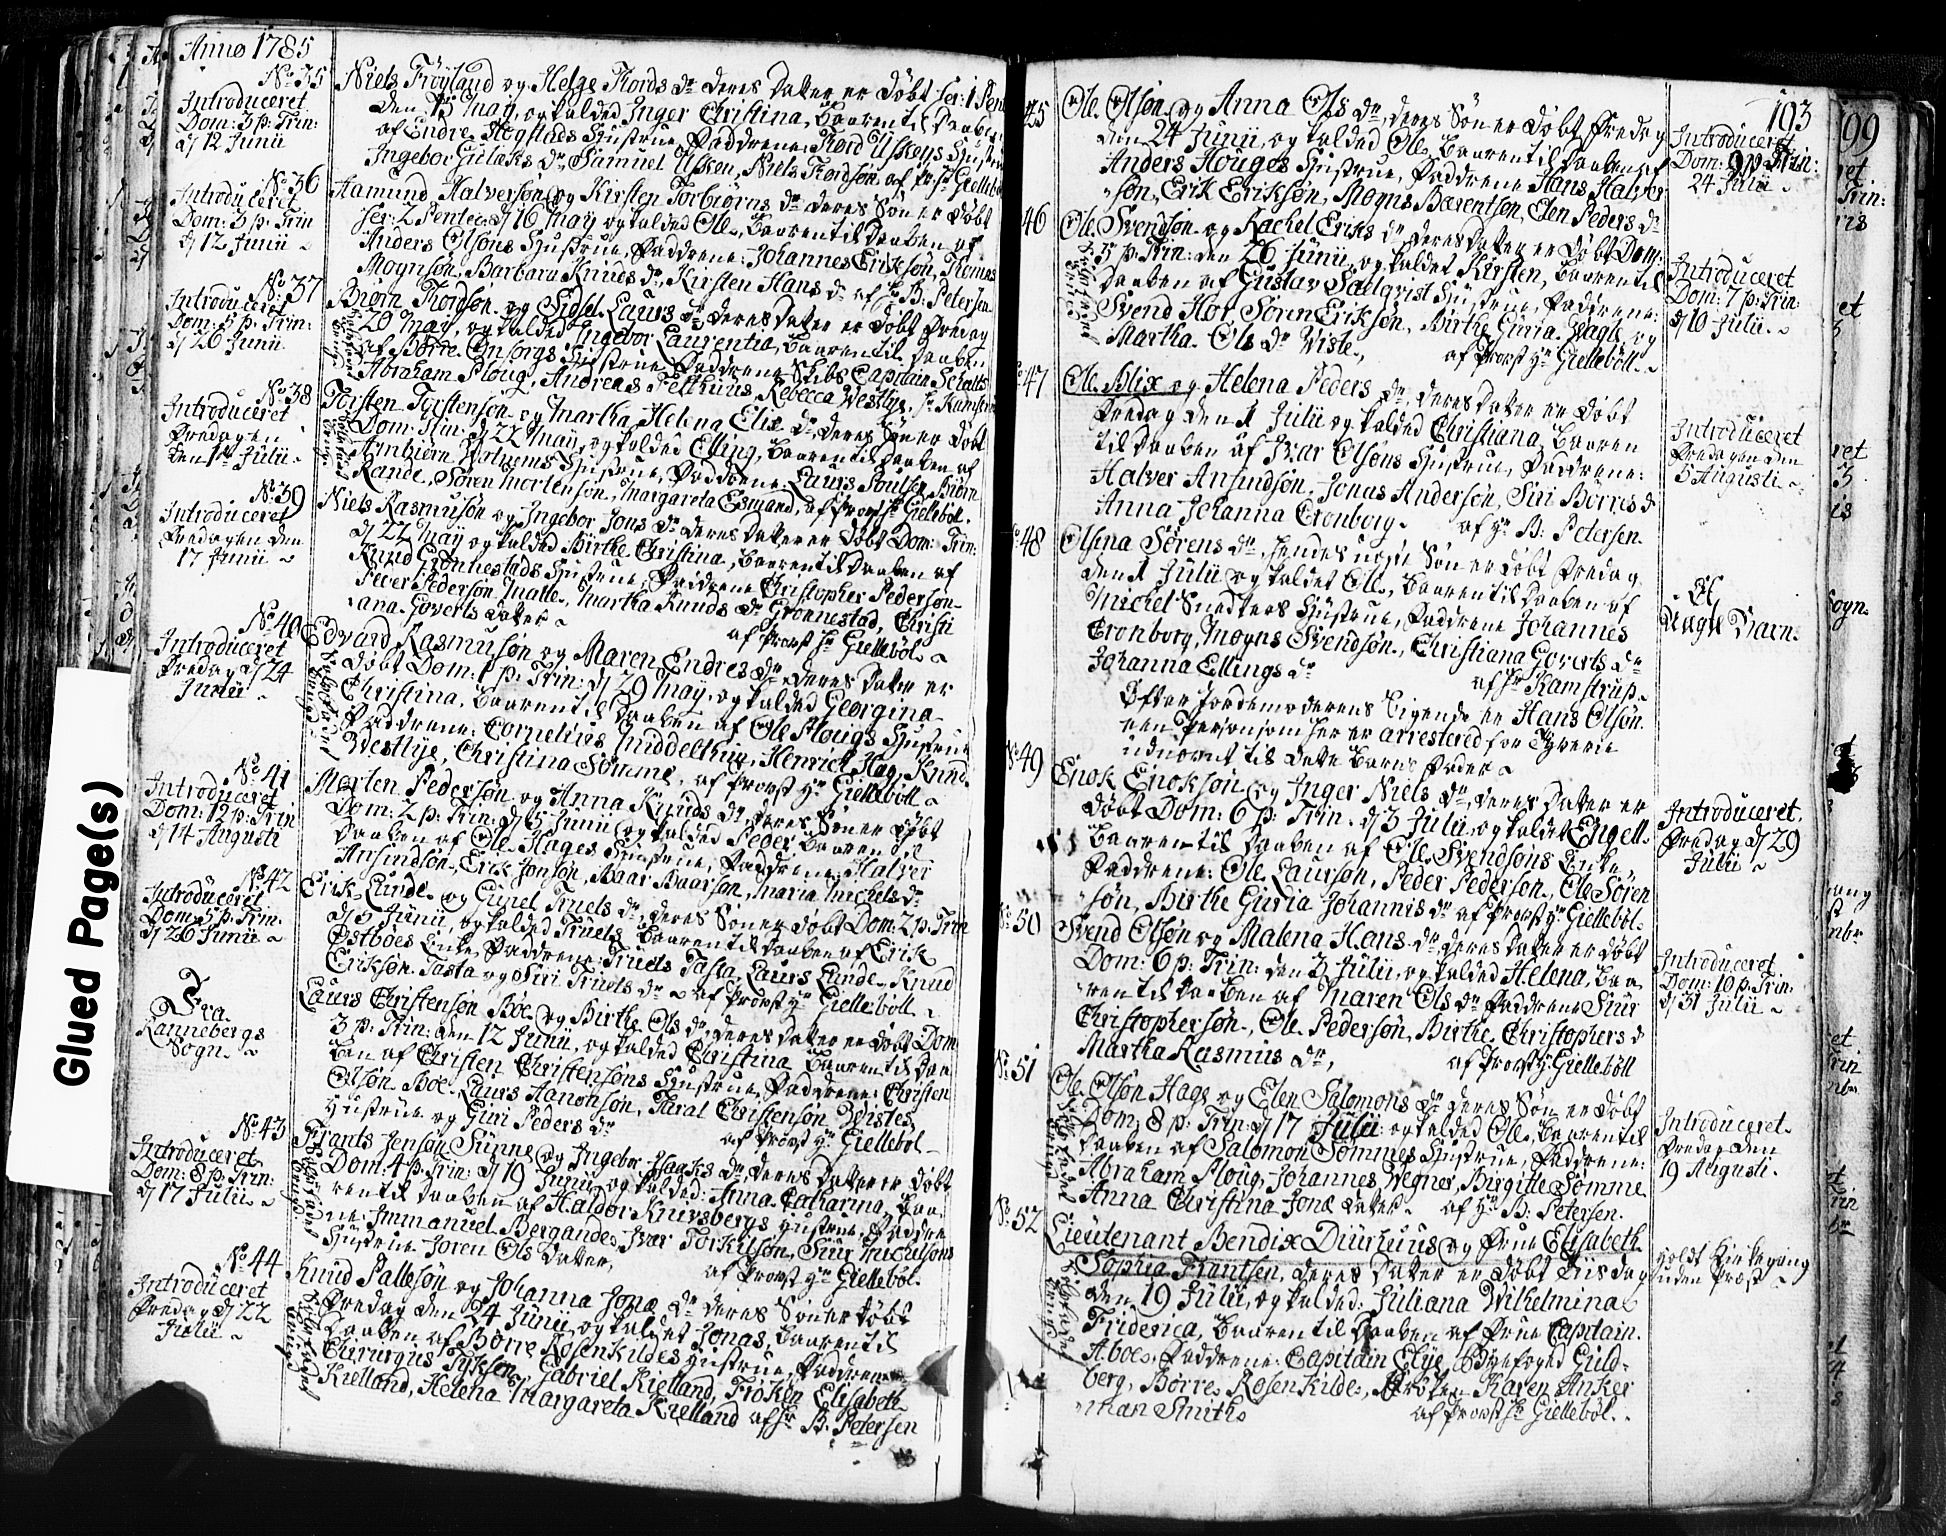 Anno 1785
No 35
Introduceret
Dom: 3 p: Trin:
d 12 Junii
Niels Fröyland og Helge Thords dr deres Datter er döbt fer: 1 Pent
den 15 May, og kalded Inger Christina, baaren til Daaben
af Endre Hogstads Hustrue, Faddrene: Thord Ulskens Hustrue
Ingebor Gulacks dr Samuel Ulsken, Niels Thordsön af Pr: Hr Giellebøl
No 36
Introduceret
Dom: 3 p: Trin
d 12 Junii
Aamund Halversön og Kirsten Torbiörns dr deres Sön er döbt
fer: 2 Pentec: d 16 May og kalded Ole, baaren til Daaben af
Anders Olsöns Hustrue, Faddrene: Johannes Eriksön, Thomas
Mognsön, Barbara Knuds dr, Kirsten Hans dr af Hr B: Petersen
No 37
Introduceret
Dom: 5 p: Trin:
d 26 Junii
Biörn Thordsön og Sidsel Laurs dr deres Datter er döbt Fredag
d 20 May, og kalded Ingebor Laurentia, baaren til Daaben
af Börre Hustrue, Faddrene: Skibs Capitain Schaltz
Abraham Ploug, Andreas Felthuus, Rebecca Westbye, Hr Kamstrup
No 38
Introduceret
Fredagen
den 1ste Julii
Torsten Torstensön og Martha Helena Elie dr, deres Sön er döbt
Dom: Trin: d 22 May, og kalded Elling, baaren til Daaben af
Hustrue, Faddrene: Laurs Poulsen, Biörn
Rande, Sören Mortensön, Margareta Esmand, af Provst Hr Giellebøl
No 39
Introduceret
Fredagen den
17 Junii
Niels Rasmusön og Ingebor Jons dr deres Datter er döbt Dom: Trin:
d 22 May og kalded Birthe Christina, baaren til Daaben af
Knud Grönnestads Hustrue, Faddrene Christopher Pedersön
Peter Pedersön Malle, Martha Knuds dr Grönnestad, Christi
ana Goverts Datter
af Provst Hr Giellebøl
No 40
Introduceret
Fredag d 24
Junii
Edvard Rasmusön og Maren Endres dr deres Datter er
döbt Dom: 1 p: Trin: d 29 May, og kalded Georgina
Christina, baaren til Daaben af Ole Plougs Hustrue
Faddrene: Cornelius Middelthun, Henrich Hag, Knud
Westlye, Christina Sömme, af Provst Hr Giellebøll
No 41
Introduceret
Dom: 12 p: Trin
d 14 Augusti
Morten Pedersön og Anna Knuds dr, deres Sön er döbt
Dom: 2 p: Trin: d 5 Junii og kalded Peder, baaren til
Daaben af Ole Hages Hustrue, Faddrene: Halver
Ansindsön, Erick Jonsön, Baar Baarsön, Maria Michels dr
No 42
Introduceret
Dom: 5 p: Trin:
d 26 Junii
Erik Lunde og Gunel Truels dr, deres Sön er döbt Dom: 2 p: Trin
d 5 Junii, og kalded Truels, baaren til Daaben af Erik
Östböes Enke, Faddrene: Truels Tasta, Laurs Lunde, Knud
Eriksön Tasta og Siri Truels dr af Provst Hr Giellebøll
Fra
Rannebergs
Sogn
Laurs Christensön Böe og Birthe Ols dr, deres Datter er döbt Dom
3 p: Trin: den 12 Junii, og kalded Christina, baaren til Daa
ben af Christen Christensöns Hustrue, Faddrene: Christen
Olsön Böe, Laurs Hanonsön, Taral Christensön Wistes
Hustrue og Giri Peders dr
af Provst Hr Giellebøl
No 43
Introduceret
Dom: 8 p: Trin:
d 17 Julii
Frants Jensön Sünne og Ingebor Isaaks dr, deres Datter er döbt
Dom: 4 p: Trin: d 19 Junii, og kalded: Anna Catharina, baa
ren til Daaben af Haldor Knivsbergs Hustrue, Faddre
ne: Immanuel Bergande, Ivar Torkilsön, Siur Michelsöns
Hustrue Joren Ols Datter,
af Provst Hr Giellebøl
No 44
Introduceret
Fredag d 22
Julii
Knud Pallesön og Johanna Jonæ dr deres Sön er döbt
Fredag den 24 Junii, og kaldet Jonas, baaren til
Daaben af Börre Rosenkildes Hustrue, Faddrene
Chirurgus Tyksen, Gabriel Kielland, Fröken Elisabeth
Kielland, Helena Margareta Kielland af Hr B: Petersen
193
45
Ole Olsön og Anna Ols dr, deres Sön er döbt Fredag
den 24 Junii, og kalded Ole, baaren til Daaben af
Anders Houges Hustrue, Faddrene Hans Halver
sön, Erik Eriksön, Mogns Barentsön, Elen Peders dr
Introduceret
Dom: 9 p: Trin:
24 Julii
46
Ole Svendsön og Rachel Eriks dr deres Datter er döbt Dom:
5 p: Trin: den 26 Junii, og kaldet Kirsten, baaren til
Daaben af Gustav Salqvist Hustrue, Faddrene:
Svend Hor, Sönn Eriksön, Birthe Guria Vagle, og
Martha Ols dr Viste,
af Provst Hr Giellebøll
Introduceret
Dom: 7 p: Trin:
d 10 Julii
No 47
Ole Blix og Helena Peders dr, deres Datter er döbt
Fredag den 1 Julii og kalded Christiana, baaren
til Daaben af Ivar Olsöns Hustrue, Faddrene:
Halver Ansindsön, Jonas Andersön, Siri Börres dr
Anna Johanna Cronborg af Hr B: Petersen
Introduceret
Fredagen den
5 Augusti
No 48
Olsena Sörens dr, hendes uægte Sön er döbt Fredag
den 1 Julii og kaldet Ole, baaren til Daaben af
Michel Snedkers Hustrue, Faddrene Johannes
Cronborg, Mogns Svendsön, Christiana Goverts dr
Johanna Ellings dr
af Hr Kamstrup
Efter Jordemoderens Sigende er Hans Olsön
een Person som her er arresteret for Tyverie
udnævnt til dette Barns Fader
Et
Uægte Barn
No 49
Enok Enoksön og Inger Niels dr, deres Datter er
döbt Dom: 6 p: Trin: d 3 Julii, og kaldet Engell
baaren til Daaben af Ole Svendsöns Enke
Faddrene: Ole Laursön, Peder Pedersön, Ole Sören
sön, Birthe Guria Johannis dr af Provst Hr Giellebøl
Introduceret
Fredag d 29
Julii
No 50
Svend Olsön og Malena Hans dr, deres Datter er döbt
Dom: 6 p: Trin: den 3 Julii, og kalded Helena, baa
ren til Daaben af Maren Ols dr Faddrene Siur
Christophersön, Ole Pedersön, Birthe Christophers dr
Martha Rasmus dr,
af Provst Hr Giellebøll
Introduceret
Dom: 10 p: Trin:
d 31 Julii
No 51
Ole Olsön Hage og Elen Salomons dr deres Sön er döbt
Dom: 8 p: Trin: d 17 Julii og kalded Ole, baaren til
Daaben af Salomon Sömmes Hustrue, Faddrene:
Abraham Ploug, Johannes Wegner, Birgitte Sömme
Anna Christina Jonæ Datter af Hr B: Petersen
Introduceret
Fredag den
19 Augusti
No 52
Lieutenant Bendix Diurhuus og Frue Elisabeth
Sophia Frantsen, deres Datter er döbt Tiisdag
den 19 Julii, og kalded: Juliana Wilhelmina
Friderica, baaren til Daaben af Frue Capitain
Aboe, Faddrene: Capitain Elye, Byefoged Guld-
berg, Börre Rosenkilde, Fröken Karen Anker
man Smiths
af Provst Hr Giellebøl
holdt Kirkegang
uden Præst
199
Glued Page(s)